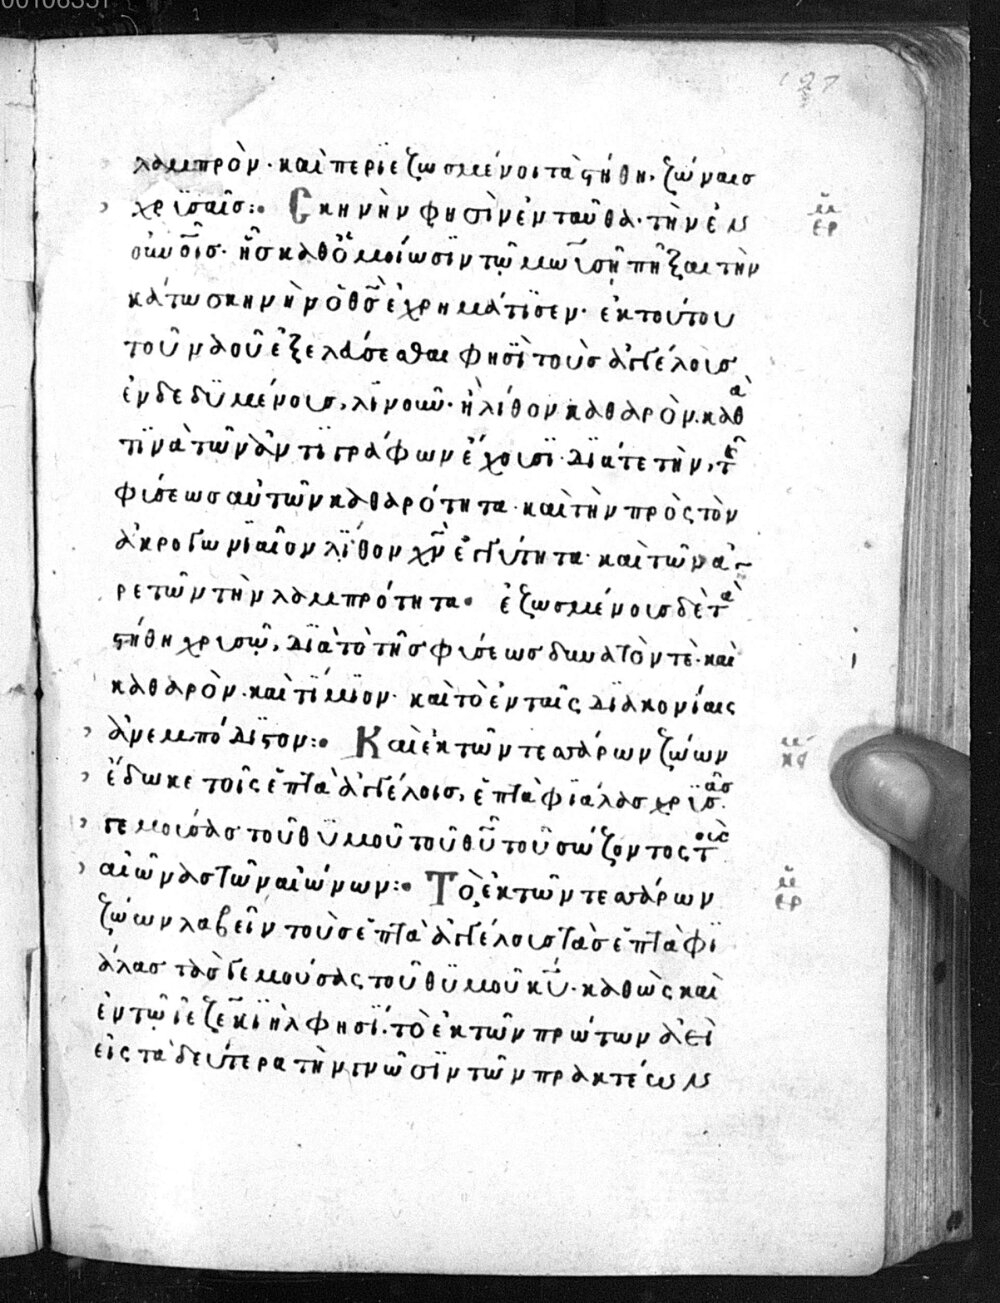 00106351
127
λαμπρὸν· καὶ περϊεζωσμένοι τὰ στήθη, ζώναισ
χρϊσαῖσ:· Σκηνὴν φησὶν ἐνταῦθα· τὴν ἐν
οὐνοῖσ· ἧσ καθ' ὁμοίωσϊν τῶ μωϊσῆ πῆξαι τὴν
κάτω σκηνὴν ὁ θσ ἐχρημάτϊσεν· ἐκ τούτου
τοῦ ναοῦ ἐξελάσεσθαι φησὶ τοὺσ ἀγγέλοισ
ἐνδεδϋμένοισ, λϊνοῦν· ἢ λίθον καθαρὸν. καθὰ
τϊνὰ τῶν ἀντϊγράφων ἔχοισϊ· διά τε τὴν, τῆσ
φισεωσ αὐτῶν καθαρότητα· καὶ τὴν πρὸς τὸν
ἀκρογωνϊαῖον λϊθον χν ἐγγύτητα· καὶ τῶν ἀ
ρετῶν τὴν λαμπρότητα· ἐζωσμένοισ δὲ τὰ
στήθη χρισῶ, διὰ τὸ τῆσ φισεωσ δυνατὸν τὲ· καὶ
καθαρὸν· καὶ τϊμϊον· καὶ τὸ ἐν ταῖς διακονίαις
ἀνεμπόδϊστον:· Καὶ ἐκ τῶν τεσσάρων ζώων
ἔδωκε τοῖς ἑπτὰ ἀγγέλοισ, ἑπτὰ φϊάλασ χρϊσᾶσ·
γεμοισασ τοῦ θϋμοῦ τοῦ θυ τοῦ σώζοντος τοὺς
αἰῶνασ τῶν αἰώνων:· Τὸ ἐκ τῶν τεσσάρων
ζώων λαβεῖν τοὺσ ἑπτὰ ἀγγέλοισ τὰσ ἑπτὰ φϊ
άλασ τὰσ γεμούσας τοῦ θϋμοῦ κυ· καθὼς καὶ
ἐν τῶ ϊεζεκϊὴλ φησϊ· τὸ ἐκ τῶν πρώτων ἀεὶ
εἰς τὰ δεύτερα τὴν γνῶσϊν τῶν πρακτέων
ερ
κς
ερ